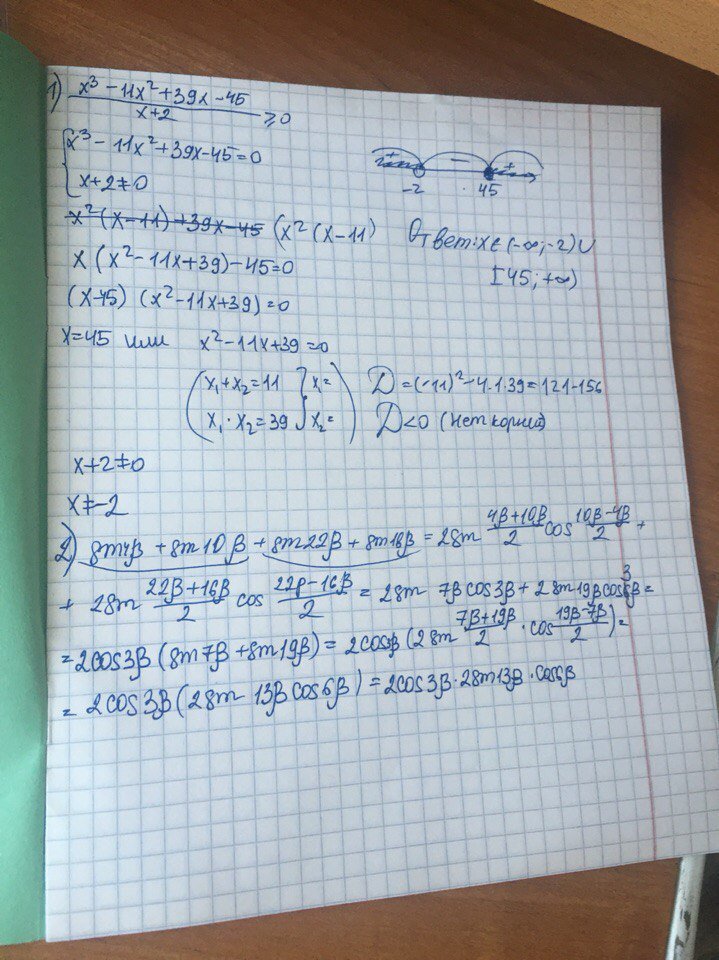 1) (x³ - 11x² + 39x - 45)/(x+2) ≥ 0
{ x³ - 11x² + 39x - 45 = 0
x+2 ≠ 0
+ − +
-2 45
x²(x-11) + 39x - 45 (x²(x-11)
Ответ: x ∈ (-∞; -2) ∪
[45; +∞)
x(x² - 11x + 39) - 45 = 0
(x-45) (x² - 11x + 39) = 0
x = 45 или x² - 11x + 39 = 0
( x₁ + x₂ = 11 } x₁ =
x₁ · x₂ = 39 } x₂ = )
D = (-11)² - 4·1·39 = 121 - 156
D < 0 (нет корней)
x+2 ≠ 0
x ≠ -2
2) sin4β + sin10β + sin22β + sin16β = 2sin (4β+10β)/2 cos (10β-4β)/2 +
+ 2sin (22β+16β)/2 cos (22β-16β)/2 = 2sin 7β cos3β + 2sin19β cos3β =
= 2cos3β (sin7β + sin19β) = 2cos3β (2sin (7β+19β)/2 · cos (19β-7β)/2) =
= 2cos3β (2sin 13β cos6β) = 2cos3β · 2sin13β · cos6β